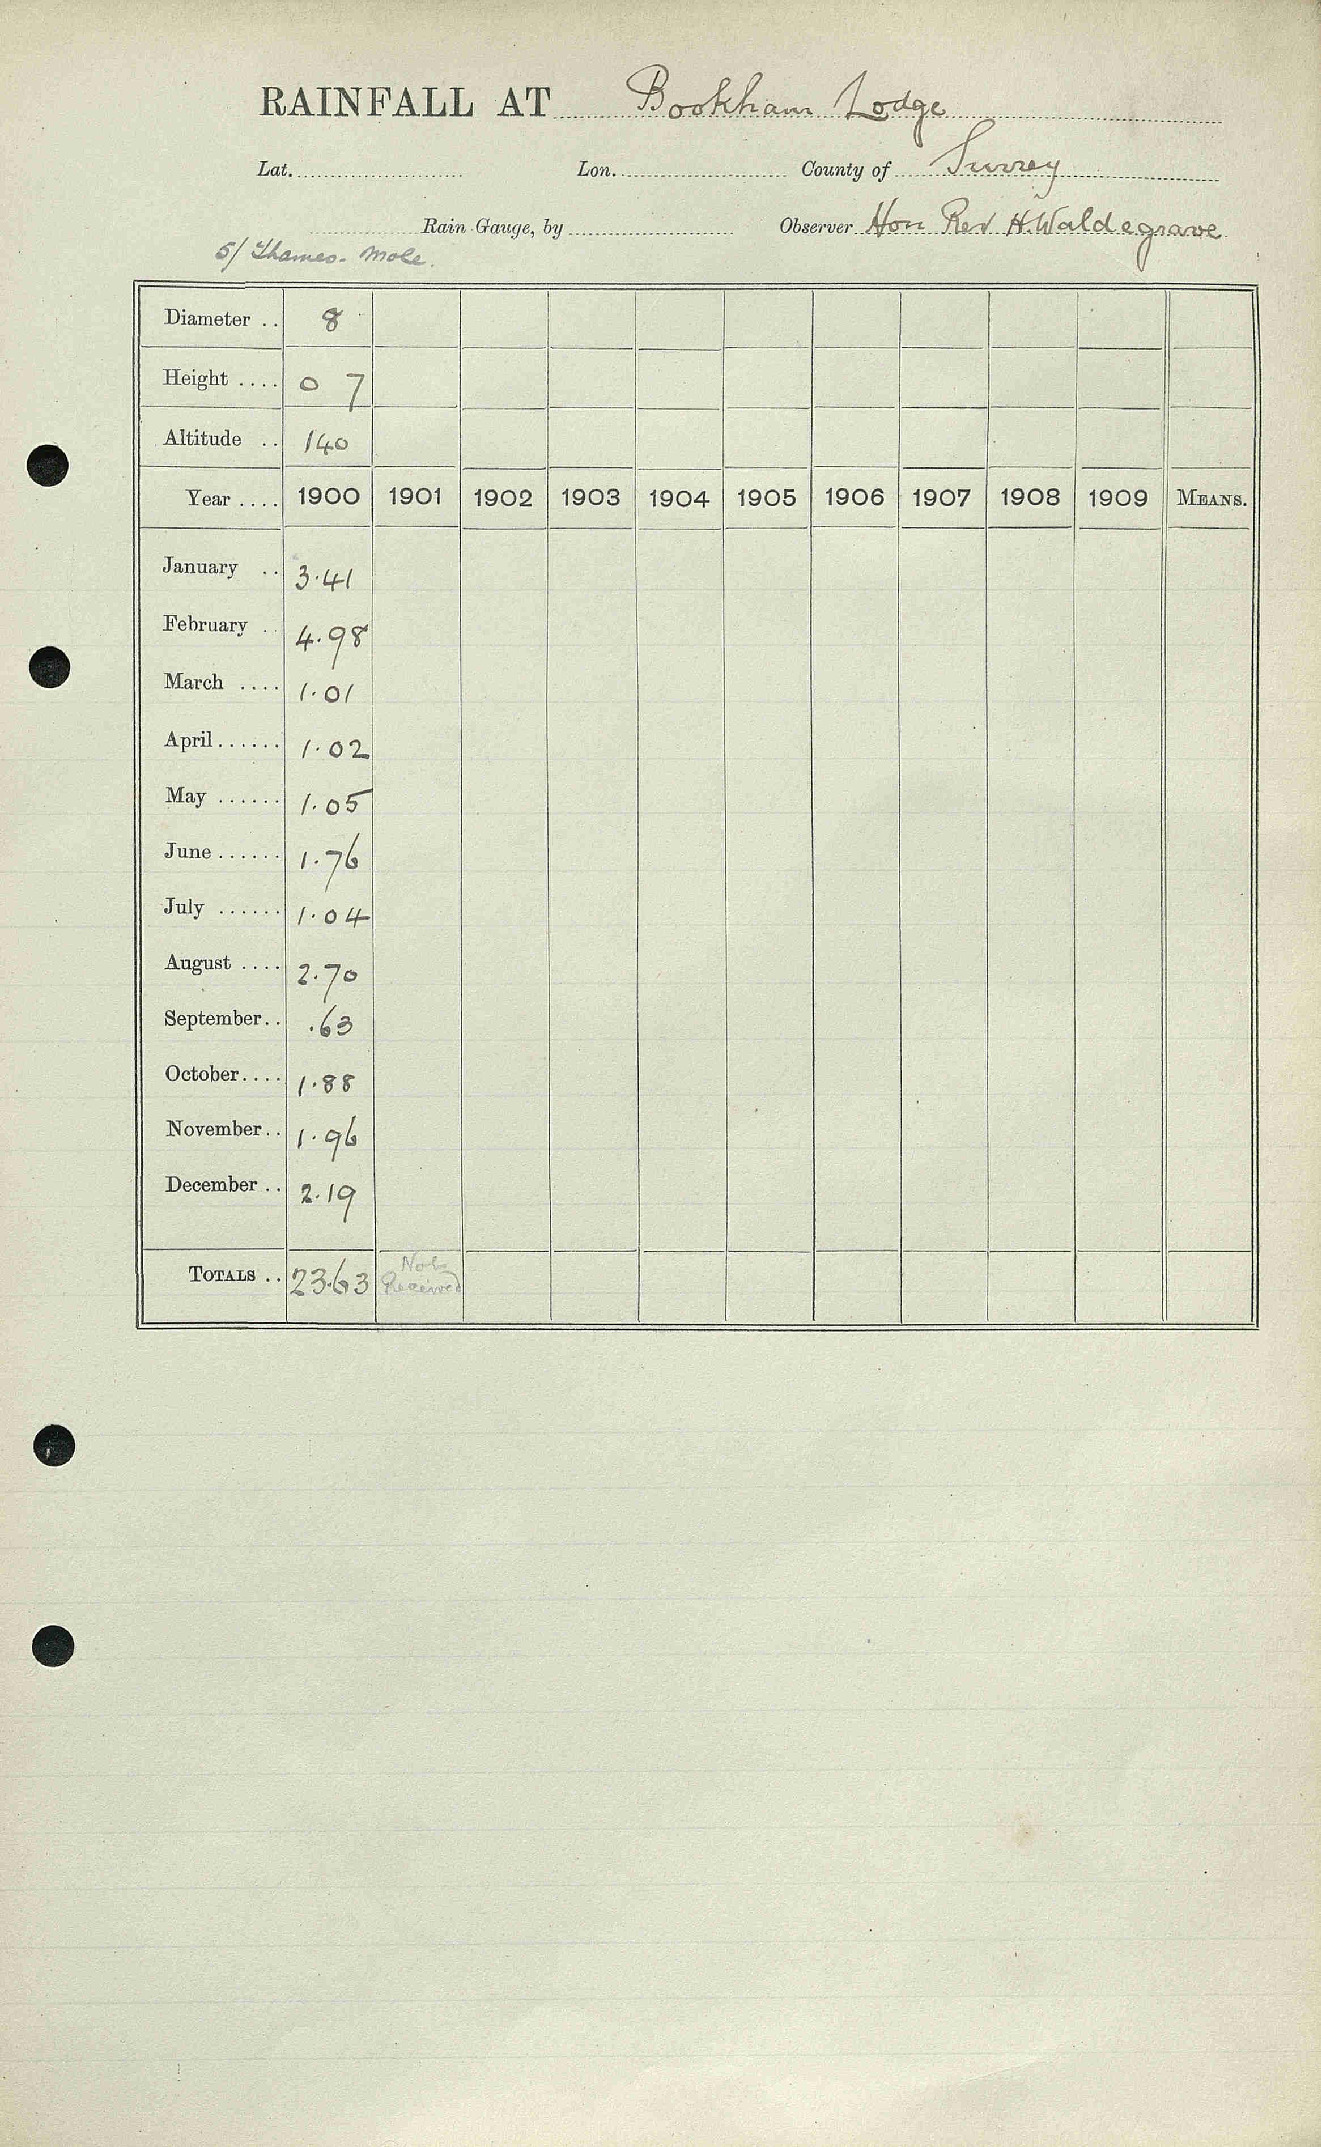 RAINFALL AT Bookham Lodge
Lat. Lon. County of Surrey
Rain Gauge, by Observer Hon Rev H. Waldegrave
5/ Thames - Mole.
Diameter .. 8
Height .... 0 7
Altitude .. 140
Year .... 1900 1901 1902 1903 1904 1905 1906 1907 1908 1909 MEANS.
January .. 3.41
February .. 4.98
March .... 1.01
April ...... 1.02
May ...... 1.05
June ...... 1.76
July ...... 1.04
August .... 2.70
September .. .63
October .... 1.88
November .. 1.96
December .. 2.19
TOTALS .. 23.63 Not Received